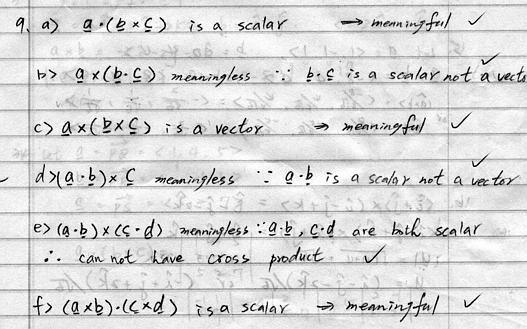 9. a) a̲·(b̲×c̲) is a scalar → meaningful ✓
b> a̲×(b̲·c̲) meaningless ∵ b̲·c̲ is a scalar not a vect ✓
c) a̲×(b̲×c̲) is a vector ⇒ meaningful ✓
d>(a̲·b̲)×c̲ meaningless ∵ a̲·b̲ is a scalar not a vector ✓
e> (a̲·b̲)×(c̲·d̲) meaningless ∵ a̲·b̲, c̲·d̲ are both scalar
∴ can not have cross product ✓
f> (a̲×b̲)·(c̲×d̲) is a scalar ⇒ meaningful ✓